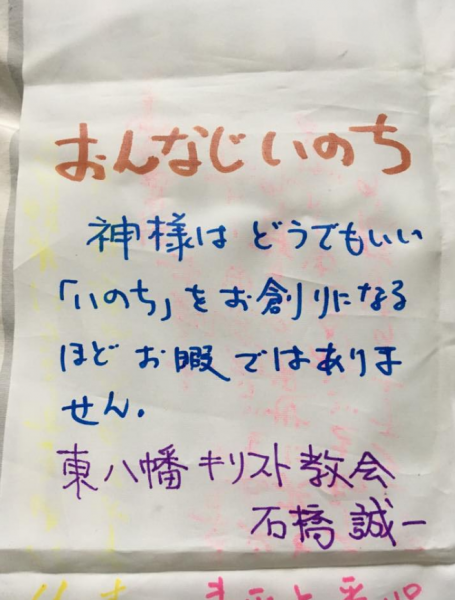 おんなじいのち
神様は どうでもいい
「いのち」をお創りになる
ほど お暇ではありま
せん.
東八幡キリスト教会
石橋誠一